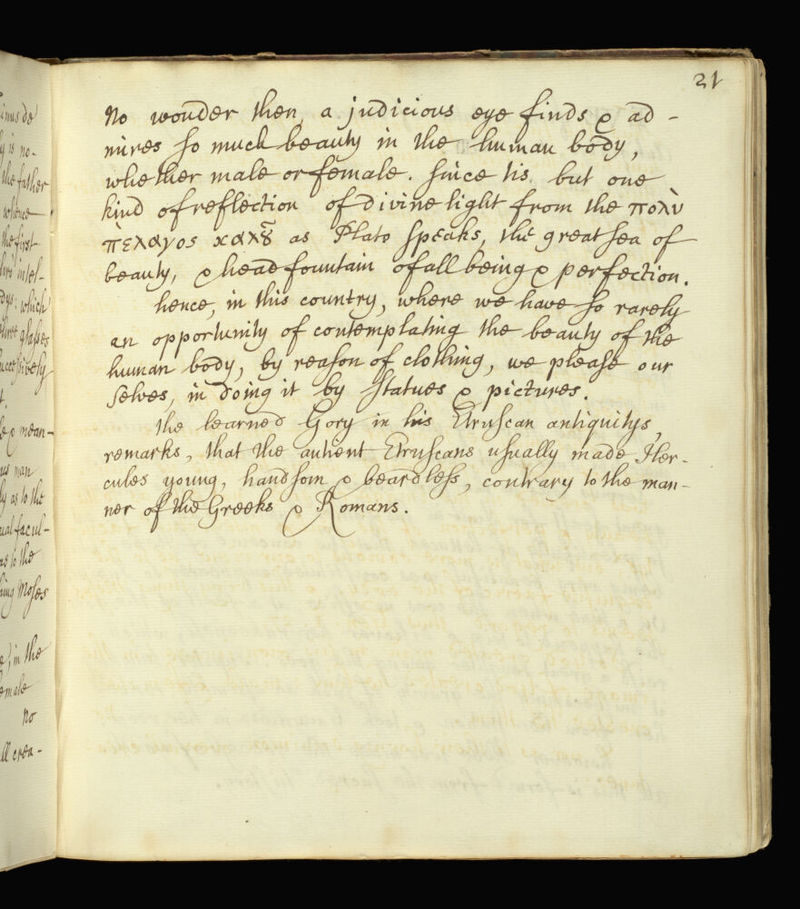 21
No wonder then, a judicious eye finds & ad-
mires so much beauty in the human body,
whether male or female. since tis but one
kind of reflection of divine light from the πολὺ
πέλαγος καλȣ͂ as Plato speaks, the great sea of
beauty, & head fountain of all being & perfection.
hence, in this country, where we have so rarely
an opportunity of contemplating the beauty of the
human body, by reason of clothing, we please our
selves, in doing it by statues & pictures.
the learned Gory in his Etruscan antiquitys,
remarks, that the antient Etruscans usually made Her-
cules young, handsom & beardless, contrary to the man-
ner of the Greeks & Romans.
the father
whence
the first
which
glasses
mean-
man
as to the
facul-
as to the
Moses
in the
female
no
all crea-